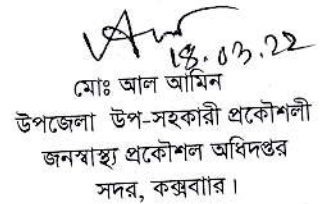 18.03.22
মোঃ আল আমিন
উপজেলা উপ-সহকারী প্রকৌশলী
জনস্বাস্থ্য প্রকৌশল অধিদপ্তর
সদর, কক্সবাার।